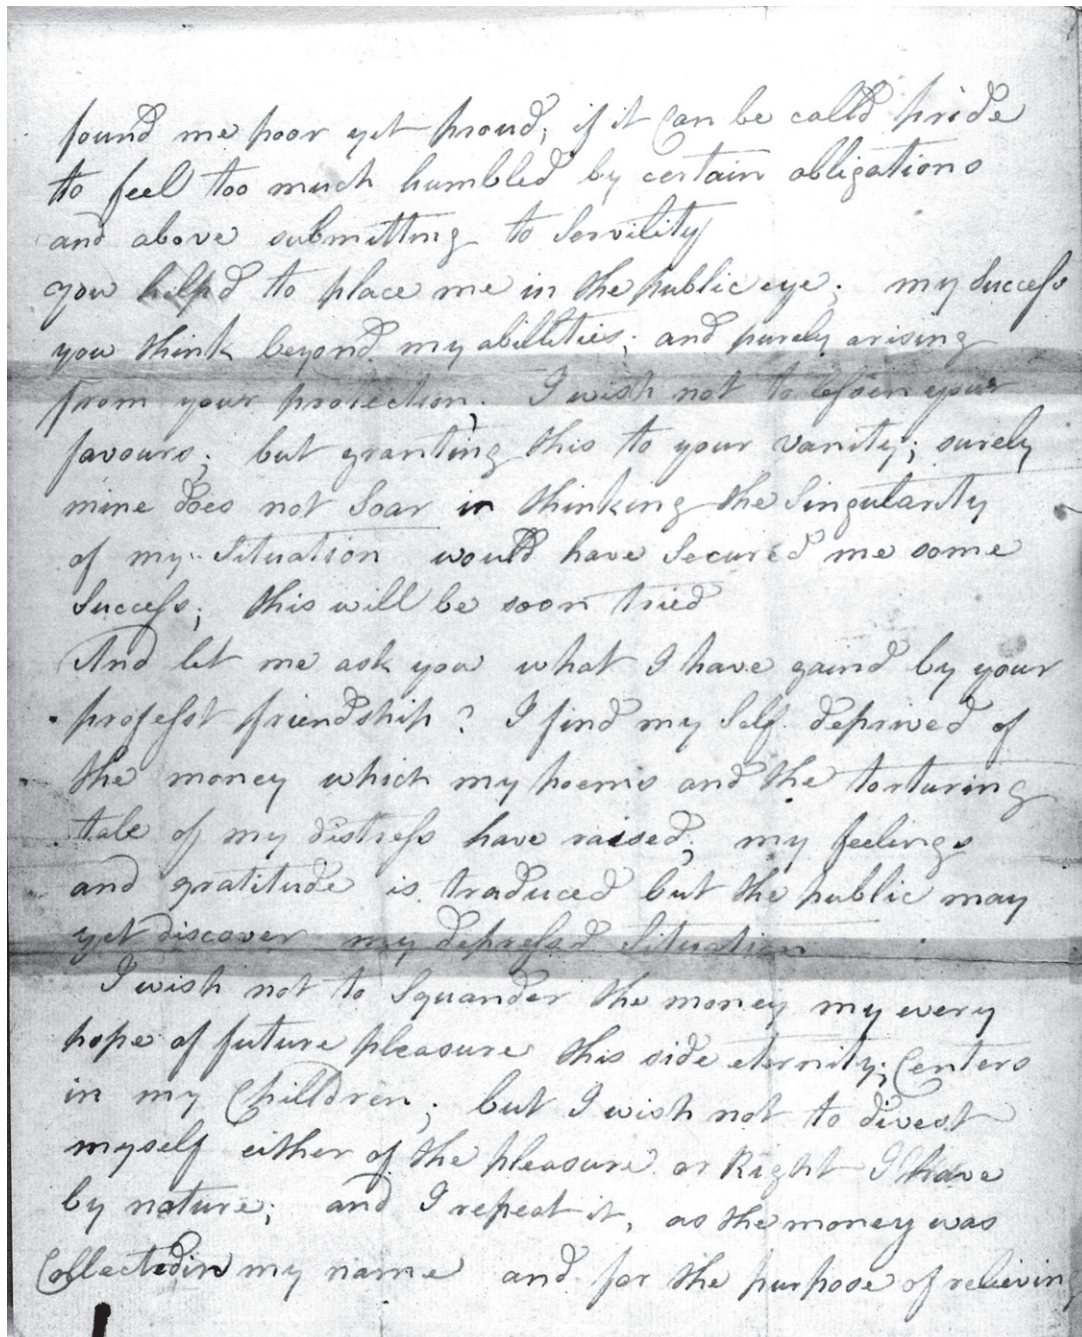 found me poor yet proud, if it Can be calld pride
to feel too much humbled by certain obligations
and above submitting to Servility
you helpd to place me in the public eye; my Success
you think beyond my abillities; and purely arising
from your protection; I wish not to lessen your
favours; but granting this to your vanity; surely
mine does not Soar in thinking the Singularity
of my Situation would have Secured me some
Success; this will be soon tried
And let me ask you what I have gaind by your
professt friendship? I find my Self deprived of
the money which my poems and the torturing
tale of my distress have raised; my feelings
and gratitude is traduced but the public may
yet discover my depressd Situation
I wish not to Squander the money my every
hope of future pleasure this side eternity; Centers
in my Chilldren; but I wish not to divest
myself either of the pleasure or Right I have
by nature; and I repeat it, as the money was
Collected in my name and for the purpose of relieving